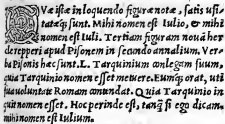 QVæ istæ in loquendo figuræ notæ, satis usi-
tatæq́; sunt. Mihi nomen est Iulio, & mihi
nomen est Iuli. Tertiam figuram noua her
de repperi apud Pisonem in secundo annalium. Ver-
ba Pisonis hæc sunt. L. Tarquinium conlegam suum,
quia Tarquinio nomen esset metuere. Eumq́; orat, uti
sua uoluntate Roman contendat. Quia Tarquinio in
quit nomen esset. Hoc perinde est, tanq̃ si ego dicam,
mihi nomen est Iulium.